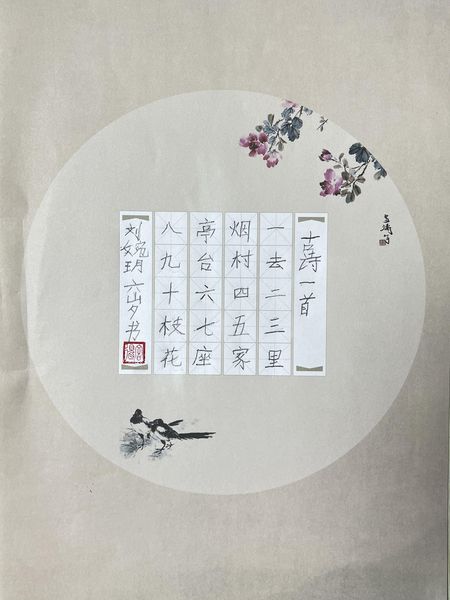 诗一首
一去二三里
烟村四五家
亭台六七座
八九十枝花
刘婉玥六岁书